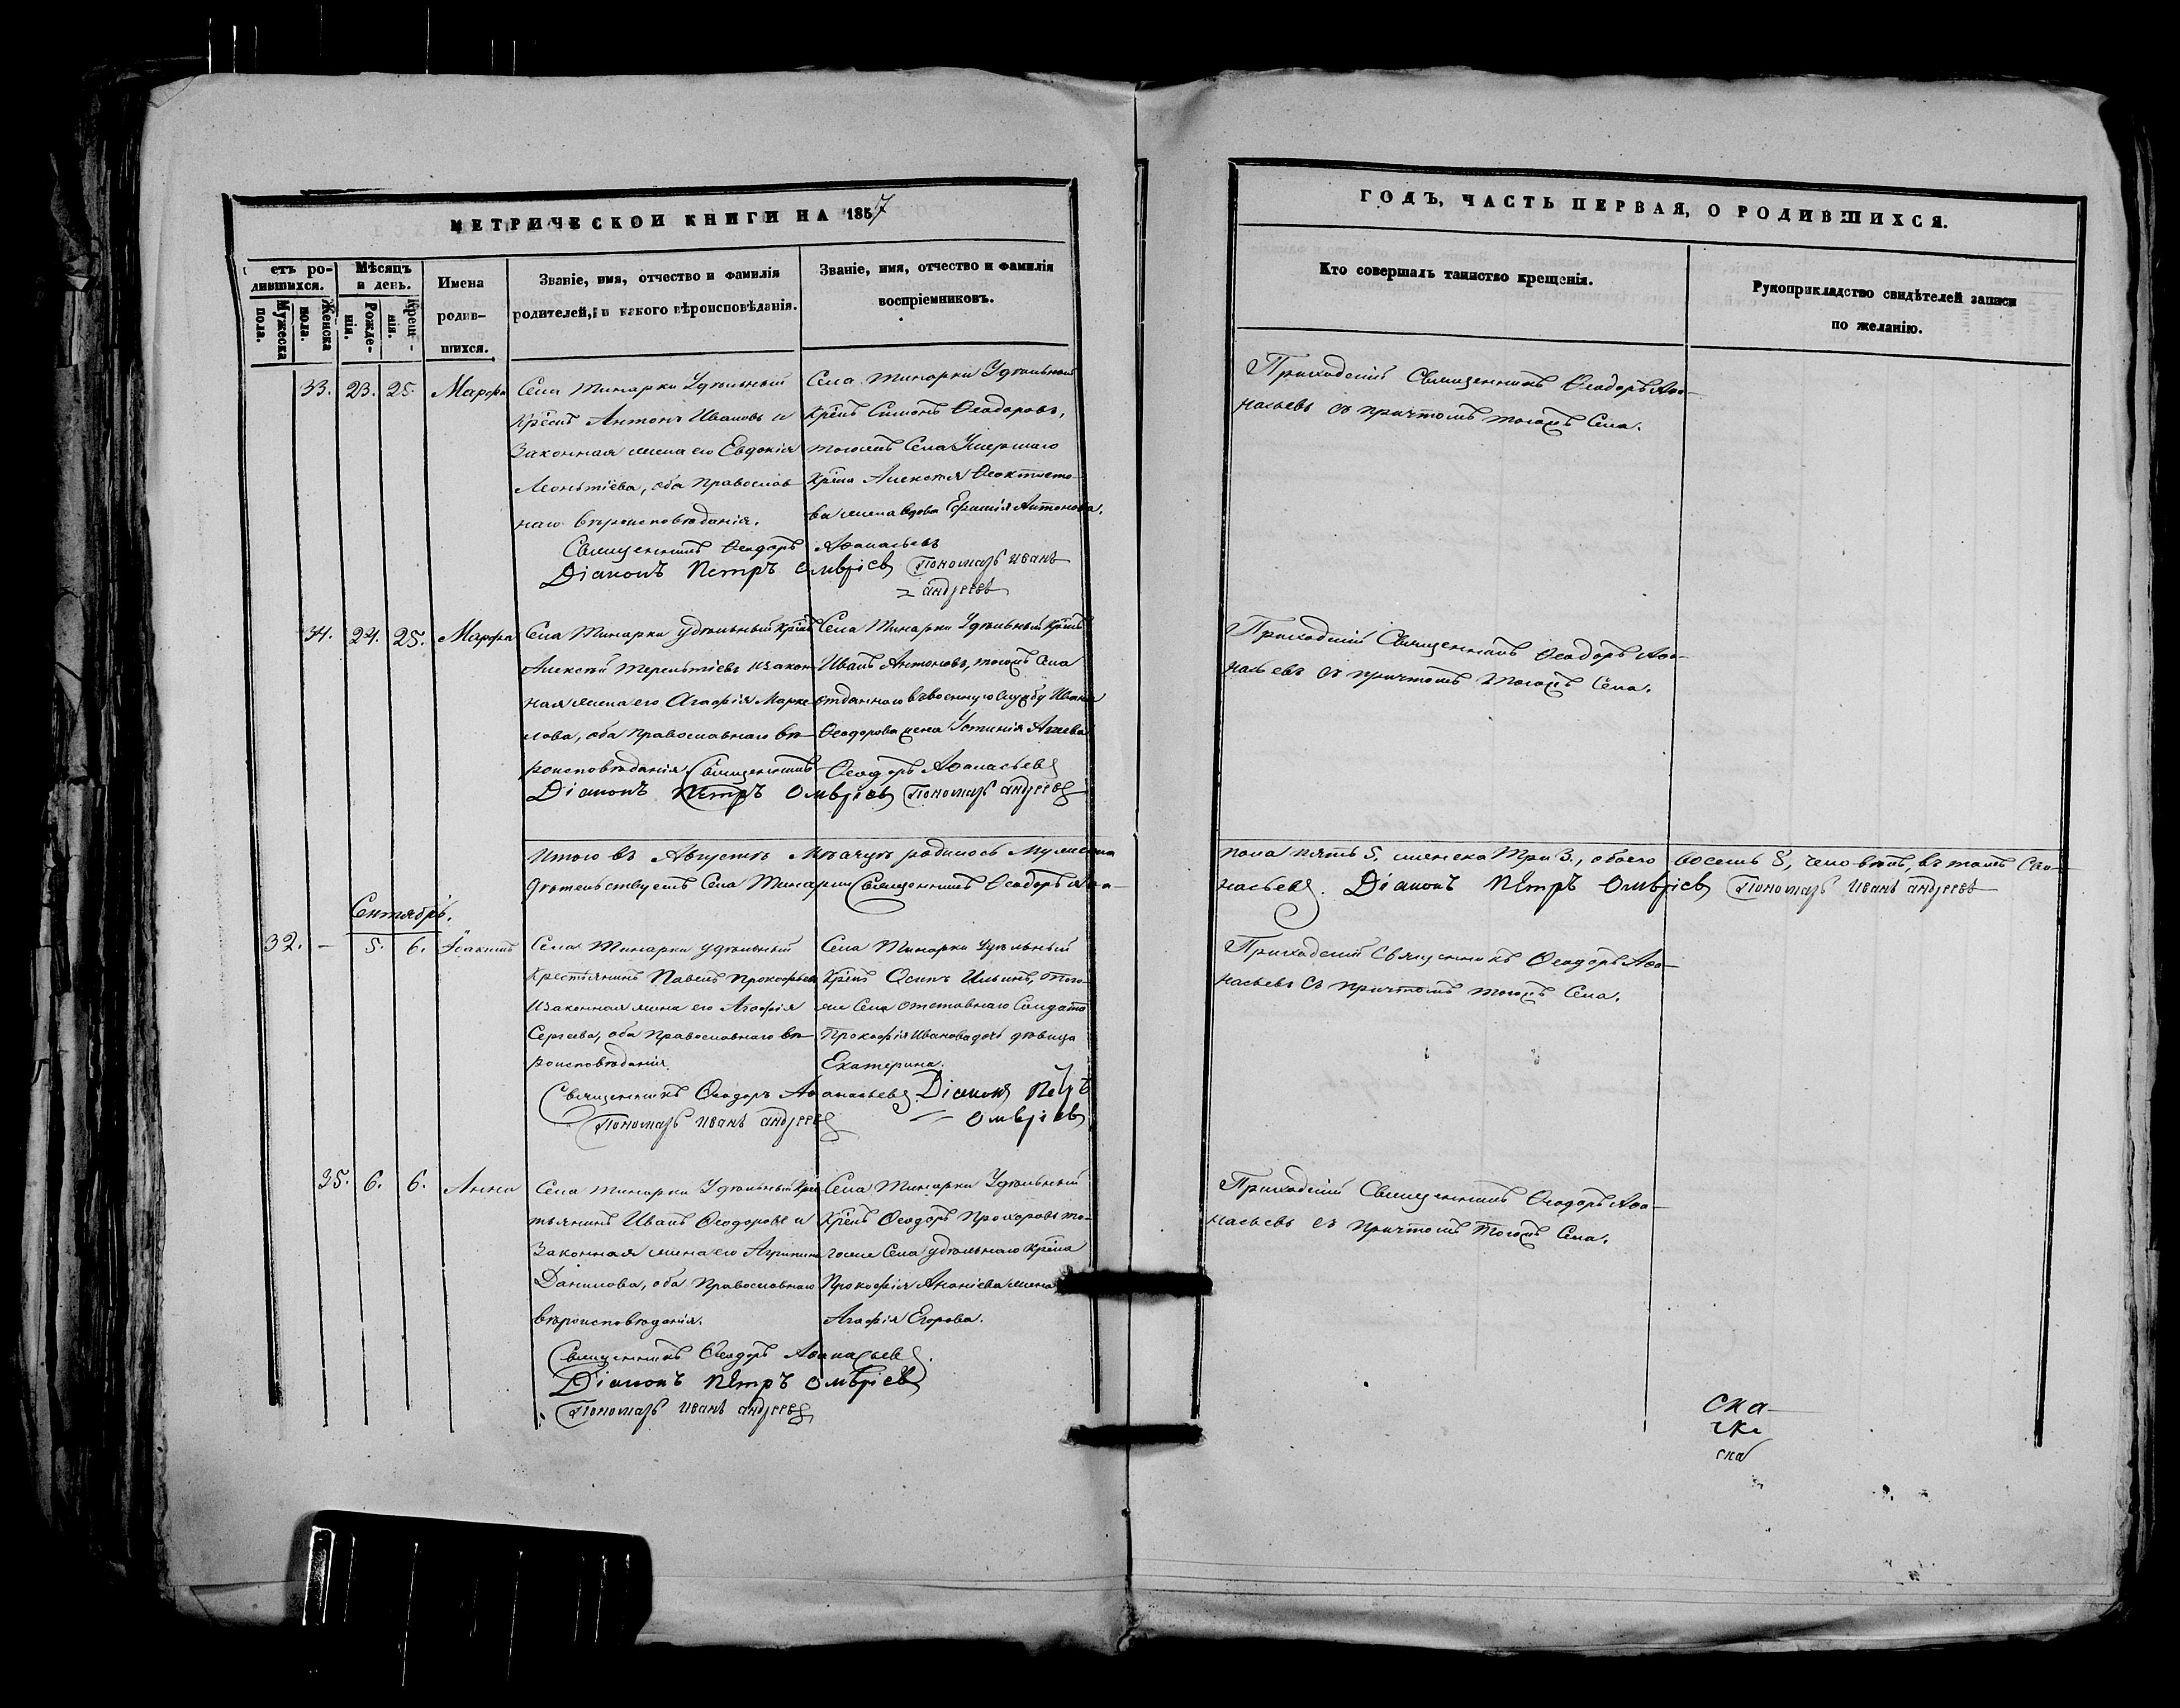 МЕТРИЧЕСКОЙ КНИГИ НА 1857
етъ ро-
дившихся.
Мужеска
пола.
Женска
пола.
Мѣсяцъ
и день.
Рожде-
нія.
Крещ-
нія.
Имена
родив-
шихся.
Званіе, имя, отчество и фамилія
родителей, и какого вѣроисповѣданія.
Званіе, имя, отчество и фамилія
воспріемниковъ.
33. 23. 25. Марфа
Села Тинарки Удѣльный
Крест Антонъ Ивановъ и
Законная жена его Евдокія
Леонтіева, оба Православ-
наго вѣроисповѣданія.
Села Тинарки Удѣльный
Крест Симонъ Ѳеодоровъ,
тогожъ Села Умершаго
Алексѣя Ѳеоктисто-
ва жена вдова Антонова.
Священникъ Ѳеодоръ Аѳанасьевъ
Діаконъ Петръ Омврієвъ Пономарь Иванъ
Андреевъ
34. 24. 25. Марфа
Села Тинарки удѣльный
Алексѣй Терентіевъ и закон-
ная жена его Агафія Марке-
лова, оба Православнаго вѣ-
роисповѣданія.
Села Тинарки Удѣльный
Иванъ Антоновъ, тогожъ Села
отданнаго въ военную службу Ивана
Ѳеодорова жена Устинія
Священникъ Ѳеодоръ Аѳанасьевъ
Діаконъ Петръ Омврієвъ Пономарь Андреевъ
Итого въ Августѣ Мѣсяцѣ родилось Мужеска
дѣтельствуетъ Села Тинарки Священникъ Ѳеодоръ Аѳа-
Сентябрь.
32. — 5. 6. Іоакимъ
Села Тинарки удѣльный
Крестьянинъ Павелъ Прокофьевъ
и законная жена его Агафія
Сергеева, оба Православнаго вѣ-
роисповѣданія.
Села Тинарки Удѣльный
Осипъ Ильинъ, того-
же Села отставнаго Солдата
Прокофія Иванова дочь дѣвица
Екатерина.
Священникъ Ѳеодоръ Аѳанасьевъ Діаконъ Петръ
Пономарь Иванъ Андреевъ Омврієвъ
35. 6. 6. Анна
Села Тинарки Удѣльный Крес
тьянинъ Иванъ Ѳеодоровъ и
Законная жена его Агрипина
Данилова, оба Православнаго
вѣроисповѣданія.
Села Тинарки Удѣльный
Ѳеодоръ Прохоровъ то-
гоже Села удѣльнаго
Прокофія Ананіева жена
Агафія Егорова.
Священникъ Ѳеодоръ Аѳанасьевъ
Діаконъ Петръ Омврієвъ
Пономарь Иванъ Андреевъ
ГОДЪ, ЧАСТЬ ПЕРВАЯ, О РОДИВШИХСЯ.
Кто совершалъ таинство крещенія.
Рукоприкладство свидѣтелей записи
по желанію.
Приходскій Священникъ Ѳеодоръ Аѳа-
насьевъ съ причтомъ тогожъ Села.
Приходскій Священникъ Ѳеодоръ Аѳа-
насьевъ съ причтомъ тогожъ Села.
пола пять 5, женска три 3, обоего восемь 8, человѣкъ, въ томъ сви-
насьевъ. Діаконъ Петръ Омврієвъ Пономарь Иванъ Андреевъ
Приходскій Священникъ Ѳеодоръ Аѳа-
насьевъ съ причтомъ тогожъ Села.
Приходскій Священникъ Ѳеодоръ Аѳа-
насьевъ съ причтомъ тогожъ Села.
ска